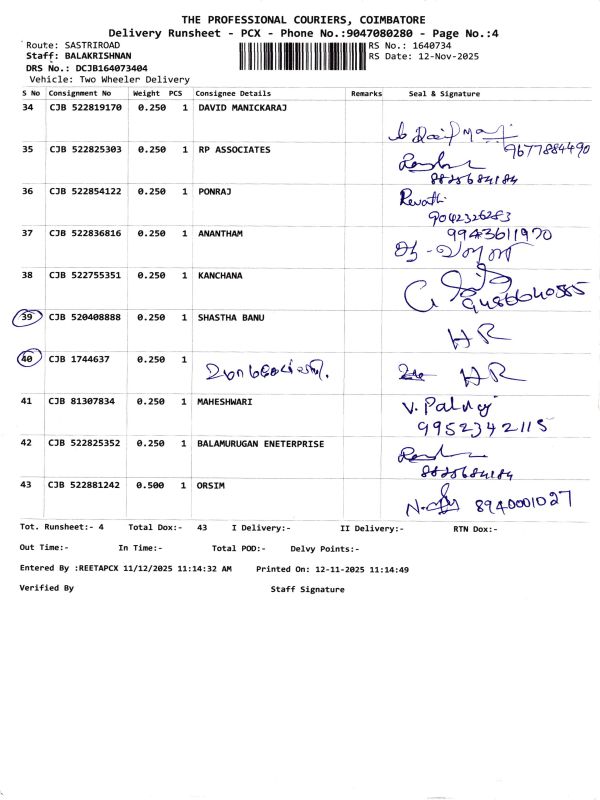 THE PROFESSIONAL COURIERS, COIMBATORE
Delivery Runsheet - PCX - Phone No.:9047080280 - Page No.:4
Route: SASTRIROAD RS No.: 1640734
Staff: BALAKRISHNAN RS Date: 12-Nov-2025
DRS No.: DCJB164073404
Vehicle: Two Wheeler Delivery
S No Consignment No Weight PCS Consignee Details Remarks Seal & Signature
34 CJB 522819170 0.250 1 DAVID MANICKARAJ
9677884490
35 CJB 522825303 0.250 1 RP ASSOCIATES
8825684184
36 CJB 522854122 0.250 1 PONRAJ Revathi
9042326283
37 CJB 522836816 0.250 1 ANANTHAM 9943611970
38 CJB 522755351 0.250 1 KANCHANA
9486640585
39 CJB 520408888 0.250 1 SHASTHA BANU HR
40 CJB 1744637 0.250 1 HR
41 CJB 81307834 0.250 1 MAHESHWARI V. Palnej
9952342115
42 CJB 522825352 0.250 1 BALAMURUGAN ENETERPRISE
8825684184
43 CJB 522881242 0.500 1 ORSIM 8940001027
Tot. Runsheet:- 4 Total Dox:- 43 I Delivery:- II Delivery:- RTN Dox:-
Out Time:- In Time:- Total POD:- Delvy Points:-
Entered By :REETAPCX 11/12/2025 11:14:32 AM Printed On: 12-11-2025 11:14:49
Verified By Staff Signature